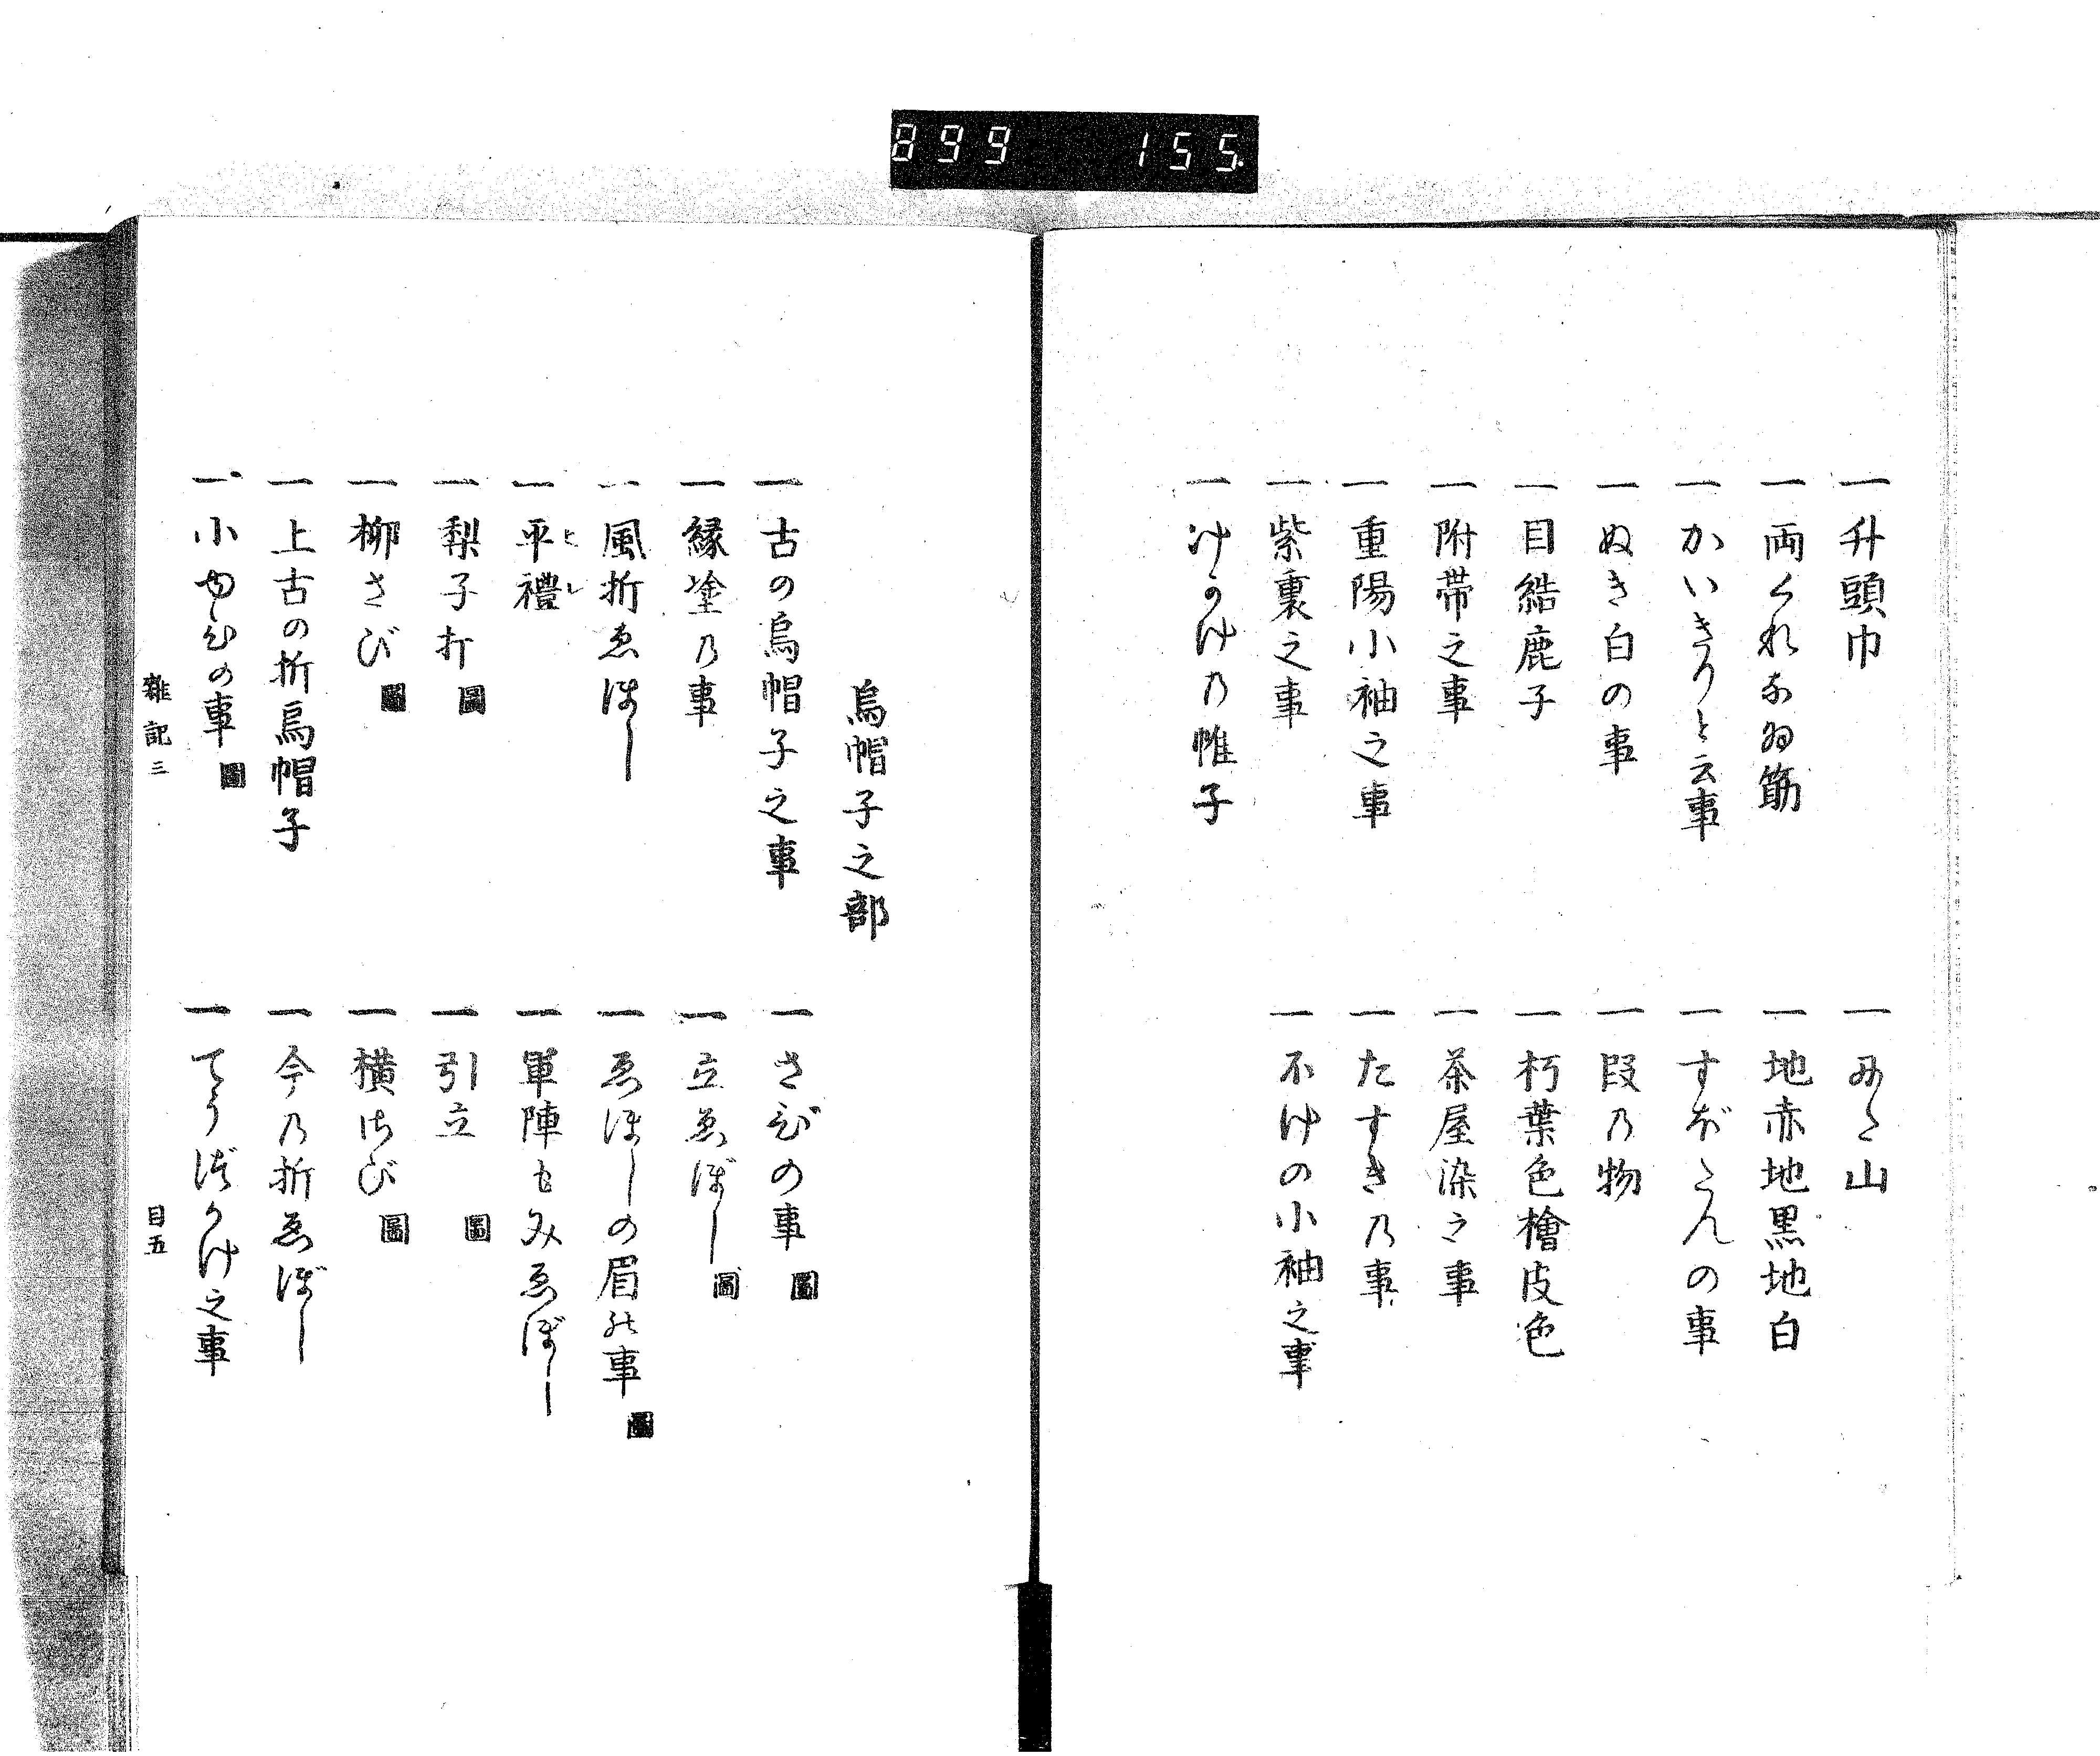 899 155
一升頭巾
一 山
一両くれなゐ筋
一地赤地黒地白
一かいきりと云事
一 の事
一ぬき白の事
一段乃物
一目結鹿子
一朽葉色檜皮色
一附帯之事
一茶屋染之事
一重陽小袖之事
一たすき乃事
一紫裏之事
一不けの小袖之事
一 乃帷子
烏帽子之部
一古の烏帽子之事
一さびの事 圖
一縁塗乃事
一立ゑぼし 圖
一風折ゑほし
一ゑほしの眉の事 圖
一平禮
ヒレ
一軍陣もみゑぼし
一梨子打 圖
一引立 圖
一柳さび 圖
一横さび 圖
一上古の折烏帽子
一今乃折ゑぼし
一小ゆひの事 圖
一てうづかけ之事
雜記三
目五